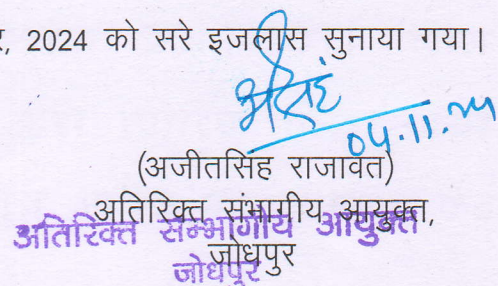 र, 2024 को सरे इजलास सुनाया गया।
04.11.24
(अजीतसिंह राजावत)
अतिरिक्त संभागीय आयुक्त,
जोधपुर
अतिरिक्त सम्भागीय आयुक्त
जोधपुर